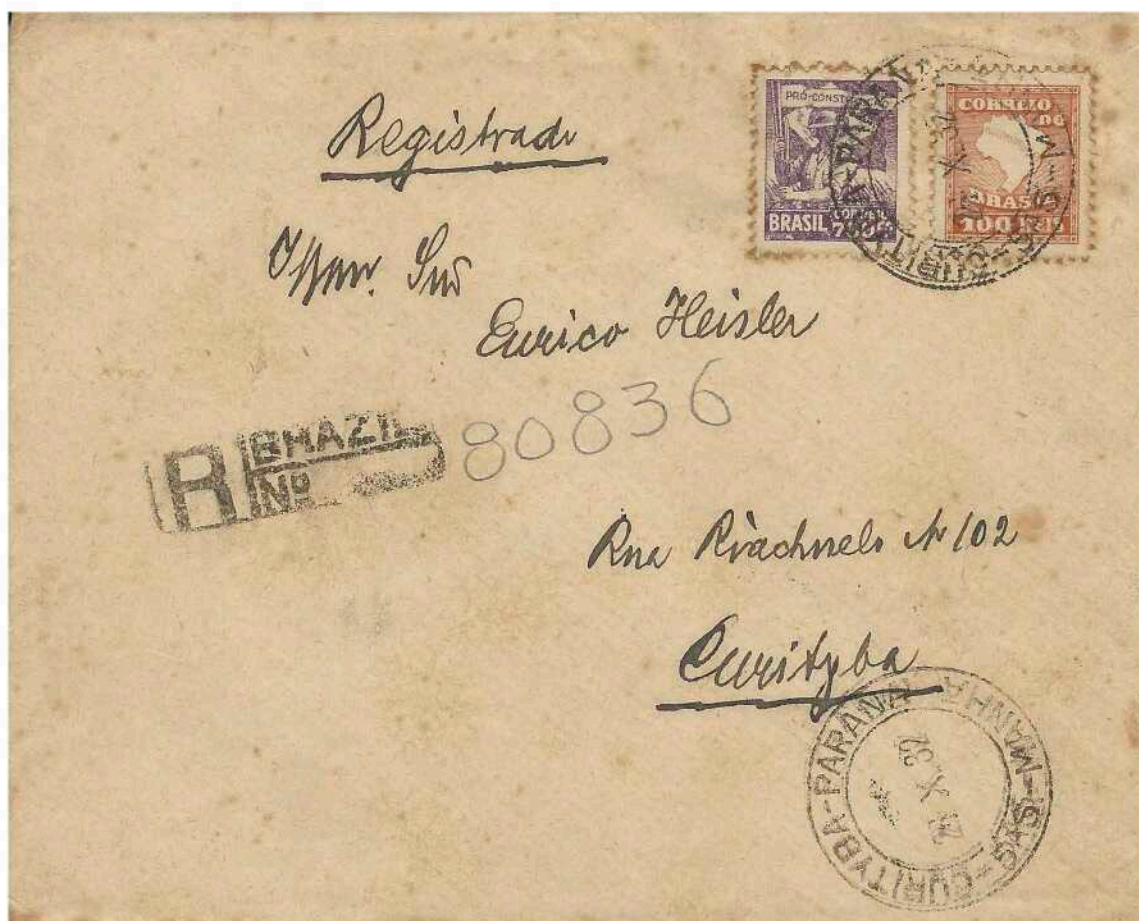 Registrado
PRÓ-CONST
BRASIL CORREIO
CORREIO
BRASIL
100 RÉIS
CURITYBA-PARANÁ
X 32
Eurico Heisler
R BRAZIL
Nº
80836
Rua Riachuelo N 102
Curityba
5ªS-CURITYBA-PARANÁ-MANHÃ
X 32